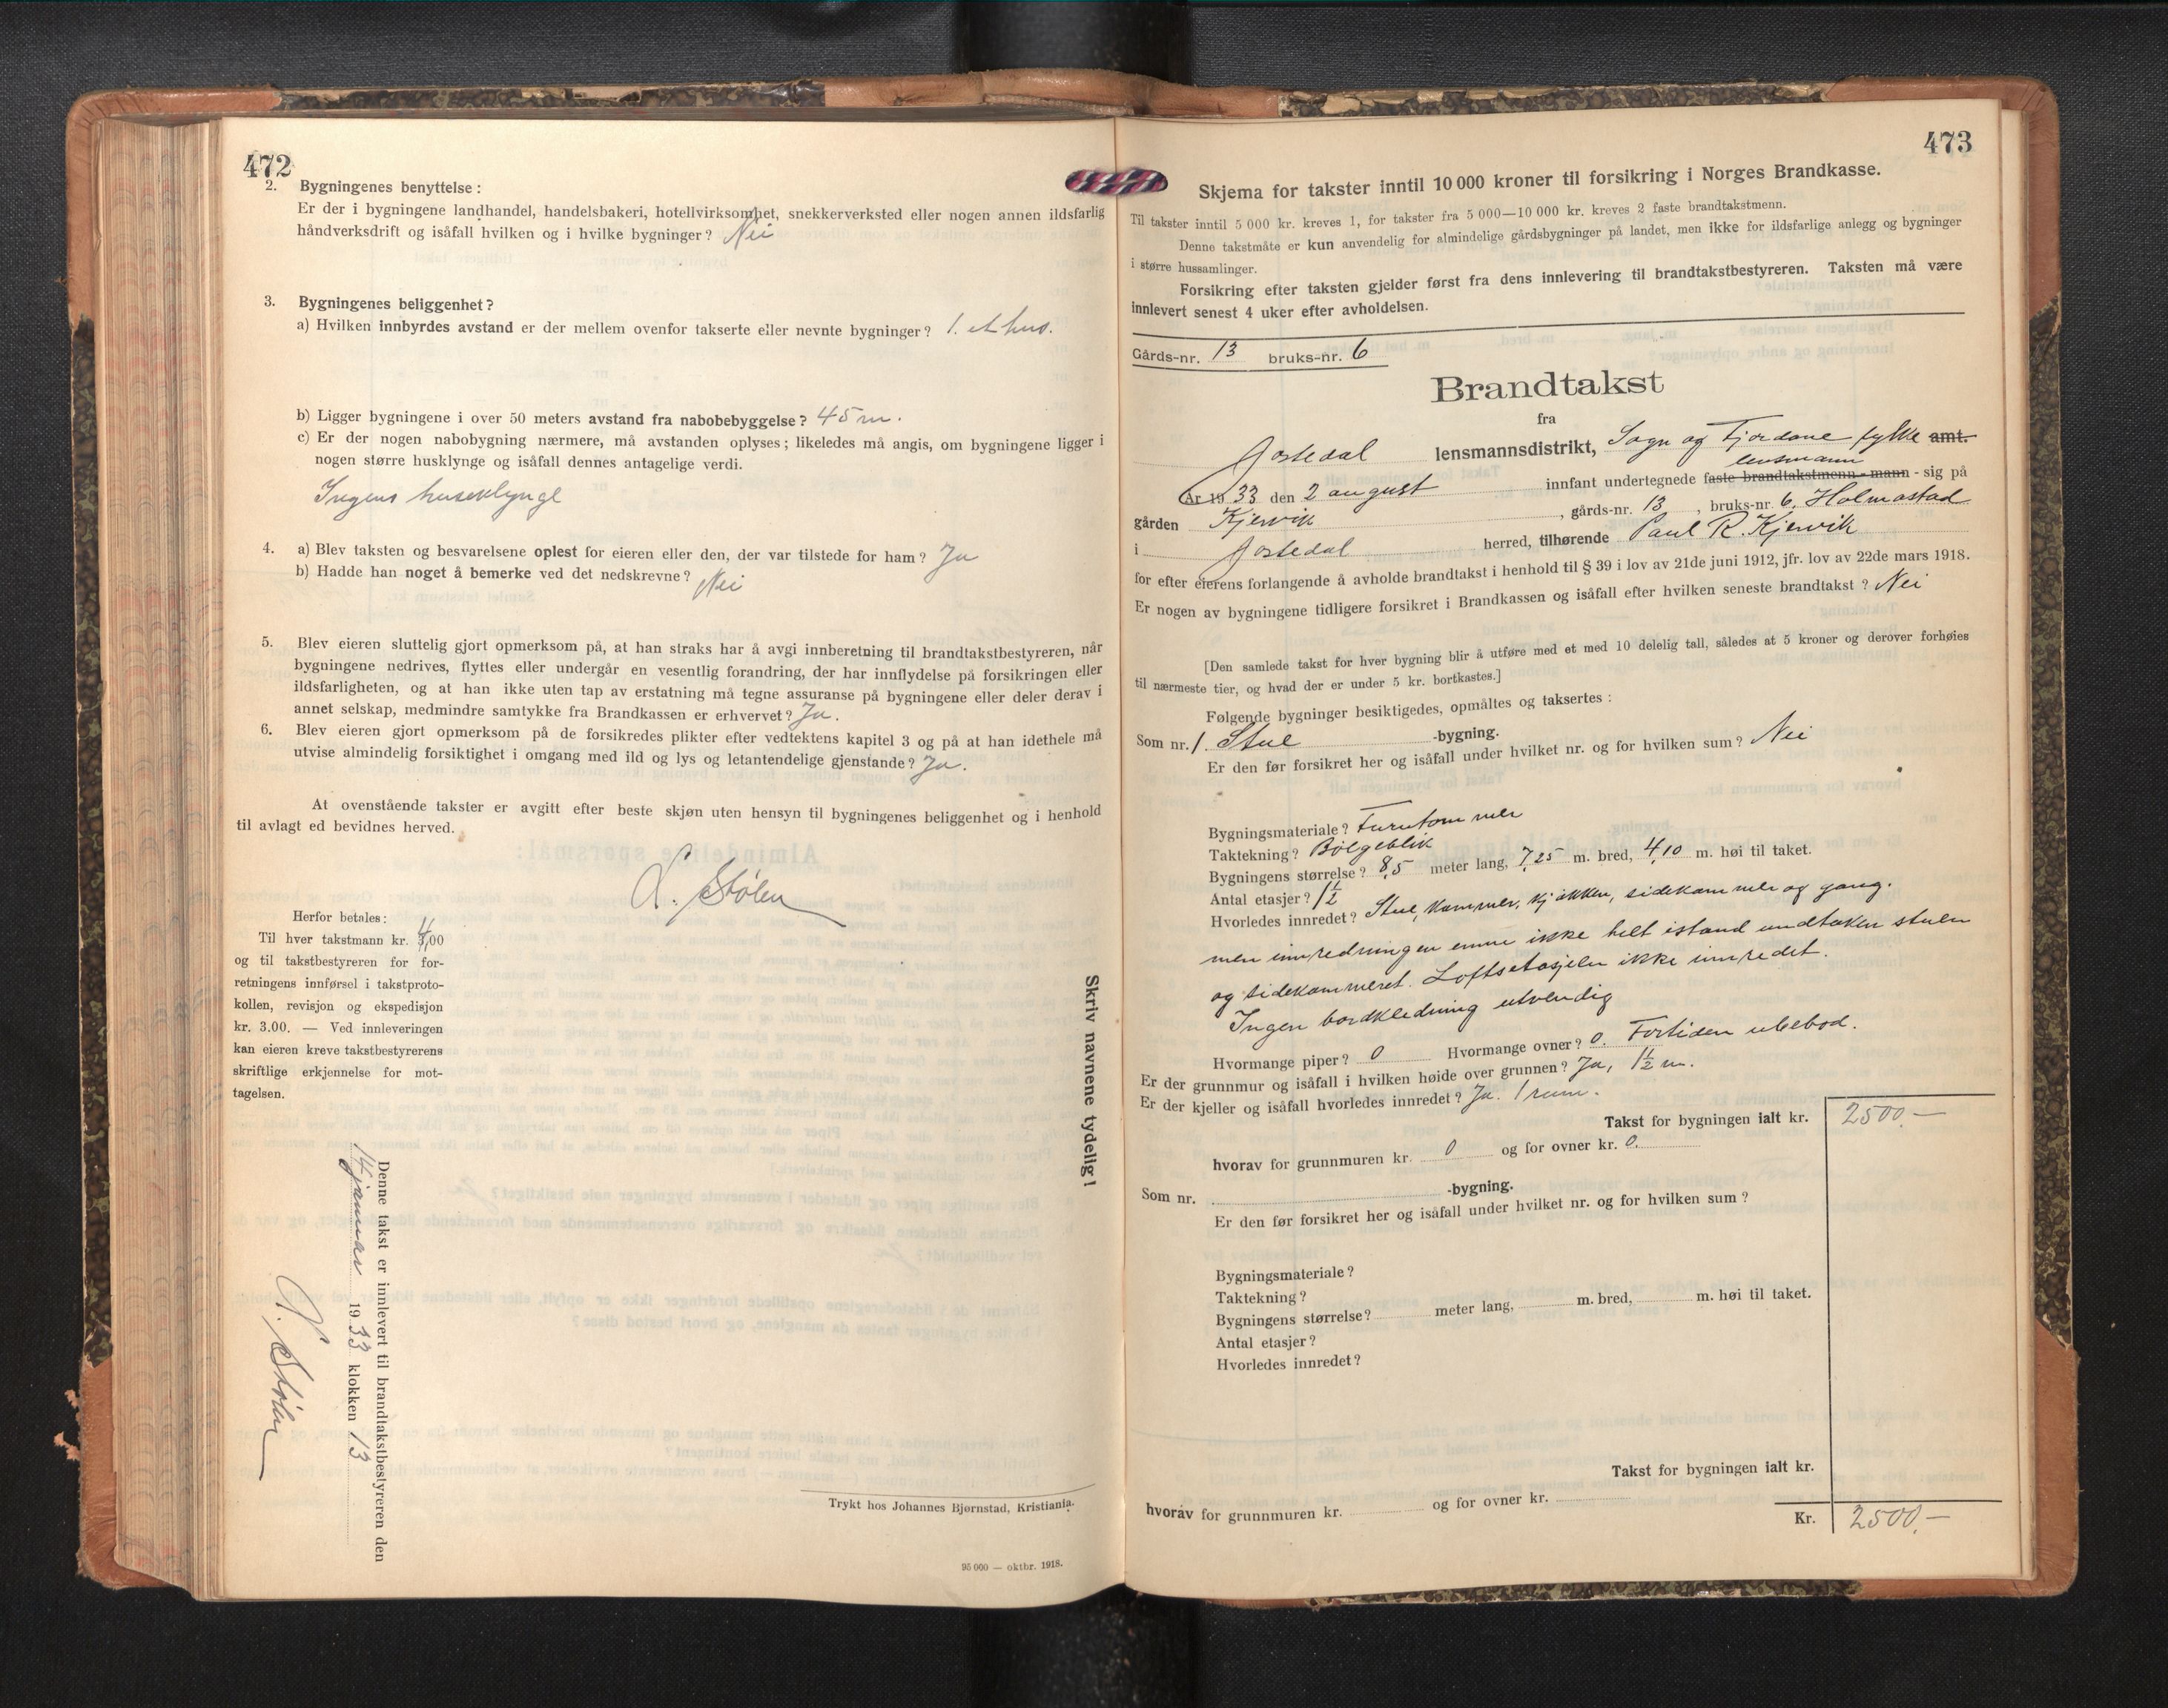 472
2. Bygningenes benyttelse:
Er der i bygningene landhandel, handelsbakeri, hotellvirksomhet, snekkerverksted eller nogen annen ildsfarlig
håndverksdrift og isåfall hvilken og i hvilke bygninger? Nei
3. Bygningenes beliggenhet?
a) Hvilken innbyrdes avstand er der mellem ovenfor takserte eller nevnte bygninger? 1. et hus.
b) Ligger bygningene i over 50 meters avstand fra nabobebyggelse? 45 m.
c) Er der nogen nabobygning nærmere, må avstanden oplyses; likeledes må angis, om bygningene ligger i
nogen større husklynge og isåfall dennes antagelige verdi.
Ingens huseklynge
4. a) Blev taksten og besvarelsene oplest for eieren eller den, der var tilstede for ham? Ja
b) Hadde han noget å bemerke ved det nedskrevne? Nei
5. Blev eieren sluttelig gjort opmerksom på, at han straks har å avgi innberetning til brandtakstbestyreren, når
bygningene nedrives, flyttes eller undergår en vesentlig forandring, der har innflydelse på forsikringen eller
ildsfarligheten, og at han ikke uten tap av erstatning må tegne assuranse på bygningene eller deler derav i
annet selskap, medmindre samtykke fra Brandkassen er erhvervet? Ja.
6. Blev eieren gjort opmerksom på de forsikredes plikter efter vedtektens kapitel 3 og på at han idethele må
utvise almindelig forsiktighet i omgang med ild og lys og letantendelige gjenstande? Ja.
At ovenstående takster er avgitt efter beste skjøn uten hensyn til bygningenes beliggenhet og i henhold
til avlagt ed bevidnes herved.
L. Stølen
Herfor betales:
Til hver takstmann kr. 3,00 4
og til takstbestyreren for for-
retningens innførsel i takstproto-
kollen, revisjon og ekspedisjon
kr. 3.00. — Ved innleveringen
kan eieren kreve takstbestyrerens
skriftlige erkjennelse for mot-
tagelsen.
Skriv navnene tydelig!
Denne takst er innlevert til brandtakstbestyreren den
14 januar 1933 klokken 13
L. Stølen
Trykt hos Johannes Bjørnstad, Kristiania.
95 000 — oktbr. 1918.
473
Skjema for takster inntil 10 000 kroner til forsikring i Norges Brandkasse.
Til takster inntil 5 000 kr. kreves 1, for takster fra 5 000—10 000 kr. kreves 2 faste brandtakstmenn.
Denne takstmåte er kun anvendelig for almindelige gårdsbygninger på landet, men ikke for ildsfarlige anlegg og bygninger
i større hussamlinger.
Forsikring efter taksten gjelder først fra dens innlevering til brandtakstbestyreren. Taksten må være
innlevert senest 4 uker efter avholdelsen.
Gårds-nr. 13 bruks-nr. 6
Brandtakst
fra
Jostedal lensmannsdistrikt, Sogn og Fjordane fylke amt.
lensmann
År 1933 den 2 august innfant undertegnede faste brandtakstmenn - mann - sig på
gården Kjervik, gårds-nr. 13, bruks-nr. 6, Holmastad
i Jostedal herred, tilhørende Paul R. Kjervik
for efter eierens forlangende å avholde brandtakst i henhold til § 39 i lov av 21de juni 1912, jfr. lov av 22de mars 1918.
Er nogen av bygningene tidligere forsikret i Brandkassen og isåfall efter hvilken seneste brandtakst? Nei
[Den samlede takst for hver bygning blir å utføre med et med 10 delelig tall, således at 5 kroner og derover forhøies
til nærmeste tier, og hvad der er under 5 kr. bortkastes.]
Følgende bygninger besiktigedes, opmåltes og taksertes:
Som nr. 1. Stue -bygning.
Er den før forsikret her og isåfall under hvilket nr. og for hvilken sum? Nei
Bygningsmateriale? Furutømmer
Taktekning? Bølgeblik
Bygningens størrelse? 8,5 meter lang, 7,25 m. bred, 4,10 m. høi til taket.
Antal etasjer? 1½
Hvorledes innredet? Stue, kammer, kjøkken, sidekammer og gang.
men innredningen ennu ikke helt istand undtaken stuen
og sidekammeret. Loftsetasjeln ikke innredet.
Ingen bordkledning utvendig
Hvormange piper? 0 Hvormange ovner? 0. Fortiden ubebod.
Er der grunnmur og isåfall i hvilken høide over grunnen? Ja, 1½ m.
Er der kjeller og isåfall hvorledes innredet? Ja. 1 rum.
Takst for bygningen ialt kr. 2500.—
hvorav for grunnmuren kr. 0 og for ovner kr. 0.
Som nr. -bygning.
Er den før forsikret her og isåfall under hvilket nr. og for hvilken sum?
Bygningsmateriale?
Taktekning?
Bygningens størrelse? meter lang, m. bred, m. høi til taket.
Antal etasjer?
Hvorledes innredet?
Takst for bygningen ialt kr.
hvorav for grunnmuren kr. og for ovner kr.
Kr. 2500.—